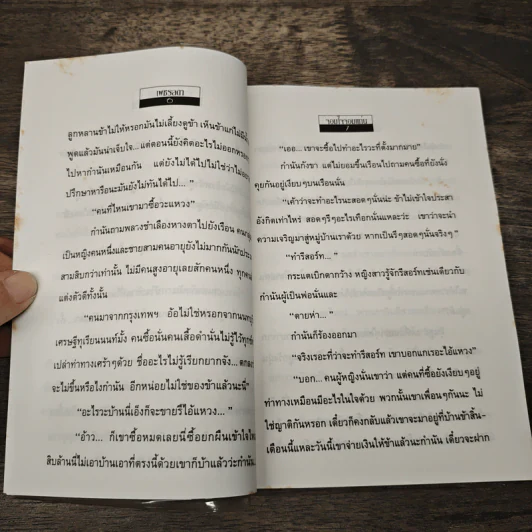 เพชรลดา
ลูกหลานข้าไม่ให้หรอกมันไม่เลี้ยงดูข้า เห็นข้าแก่ไม่มี
พูดแล้วมันน่าเจ็บใจ... แต่ตอนนี้ยังคิดอะไรไม่ออกหรอก
ไปหากำนันเหมือนกัน แต่ยังไม่ได้ไปไม่ใช่ว่าไม่อยาก
ปรึกษาหารือนะมันยังไม่ทันได้ไป... ”
“คนที่ไหนเขามาซื้อวะแหวง”
กำนันถามพลางชำเลืองหางตาไปยังเรือน
เป็นหญิงคนหนึ่งและชายสามคนอายุยังไม่มากกันนัก
สามสิบกว่าเท่านั้น ไม่มีคนสูงอายุเลยสักคนหนึ่ง ทุกคน
แต่งตัวดีทั้งนั้น
“คนมาจากกรุงเทพฯ อ้อไม่ใช่หรอกจากนนท
เศรษฐีทุเรียนนนท์มั้ง คนซื้อนั่นคนเสื้อดำนั่นไม่รู้ไว้ทุกข์
เปล่าท่าทางเศร้าๆด้วย ชื่ออะไรไม่รู้เรียกยากจัง...
จะไม่ขึ้นหรือไงกำนัน อีกหน่อยไม่ใช่ของข้าแล้วนะนี่”
“อะไรวะบ้านนี่เอ็งก็จะขายรึไอ้แหวง... ”
“อ้าว... ก็เขาซื้อหมดเลยนี่ซื้อยกผืนเข้าใจ
สิบล้านนี่ไม่เอาบ้านเอาที่ตรงนี้ด้วยเขาก็บ้าแล้วว่ะกำนัน
“เออ... เขาจะซื้อไปทำอะไรวะที่ตั้งมากมาย”
กำนันกังขา แต่ไม่ยอมขึ้นเรือนไปถามคนซื้อที่ยังนั่ง
คุยกันอยู่เงียบๆบนเรือนนั่น
“เค้าว่าจะทำอะไรนะสอดๆนั่นน่ะ ข้าไม่เข้าใจประสา
อังกิดเท่าไหร่ สอดๆรีๆอะไรเทือกนั่นแหละว่ะ เขาว่าจะนำ
ความเจริญมาสู่หมู่บ้านเราด้วย หากเป็นรีๆสอดๆนั่นจริงๆ”
“ทำรีสอร์ท... ”
กระแตเบิกตากว้าง หญิงสาวรู้จักรีสอร์ทเช่นเดียวกับ
กำนันผู้เป็นพ่อนั่นและ
“ตายห่า... ”
กำนันก็ร้องออกมา
“จริงเรอะที่ว่าจะทำรีสอร์ท เขาบอกแกเรอะไอ้แหวง”
“บอก... คนผู้หญิงนั่นเขาว่า แต่คนที่ซื้อยังเงียบๆอยู่
ท่าทางเหมือนมีอะไรในใจด้วย พวกนั้นเขาเพื่อนๆกันนะ ไม่
ใช่ญาติกันหรอก เดี๋ยวก็คงกลับแล้วเขาจะมาอยู่ที่บ้านข้าสิ้น-
เดือนนี้แหละวันนี้เขาจ่ายเงินให้ข้าแล้วนะกำนัน เดี๋ยวจะฝาก